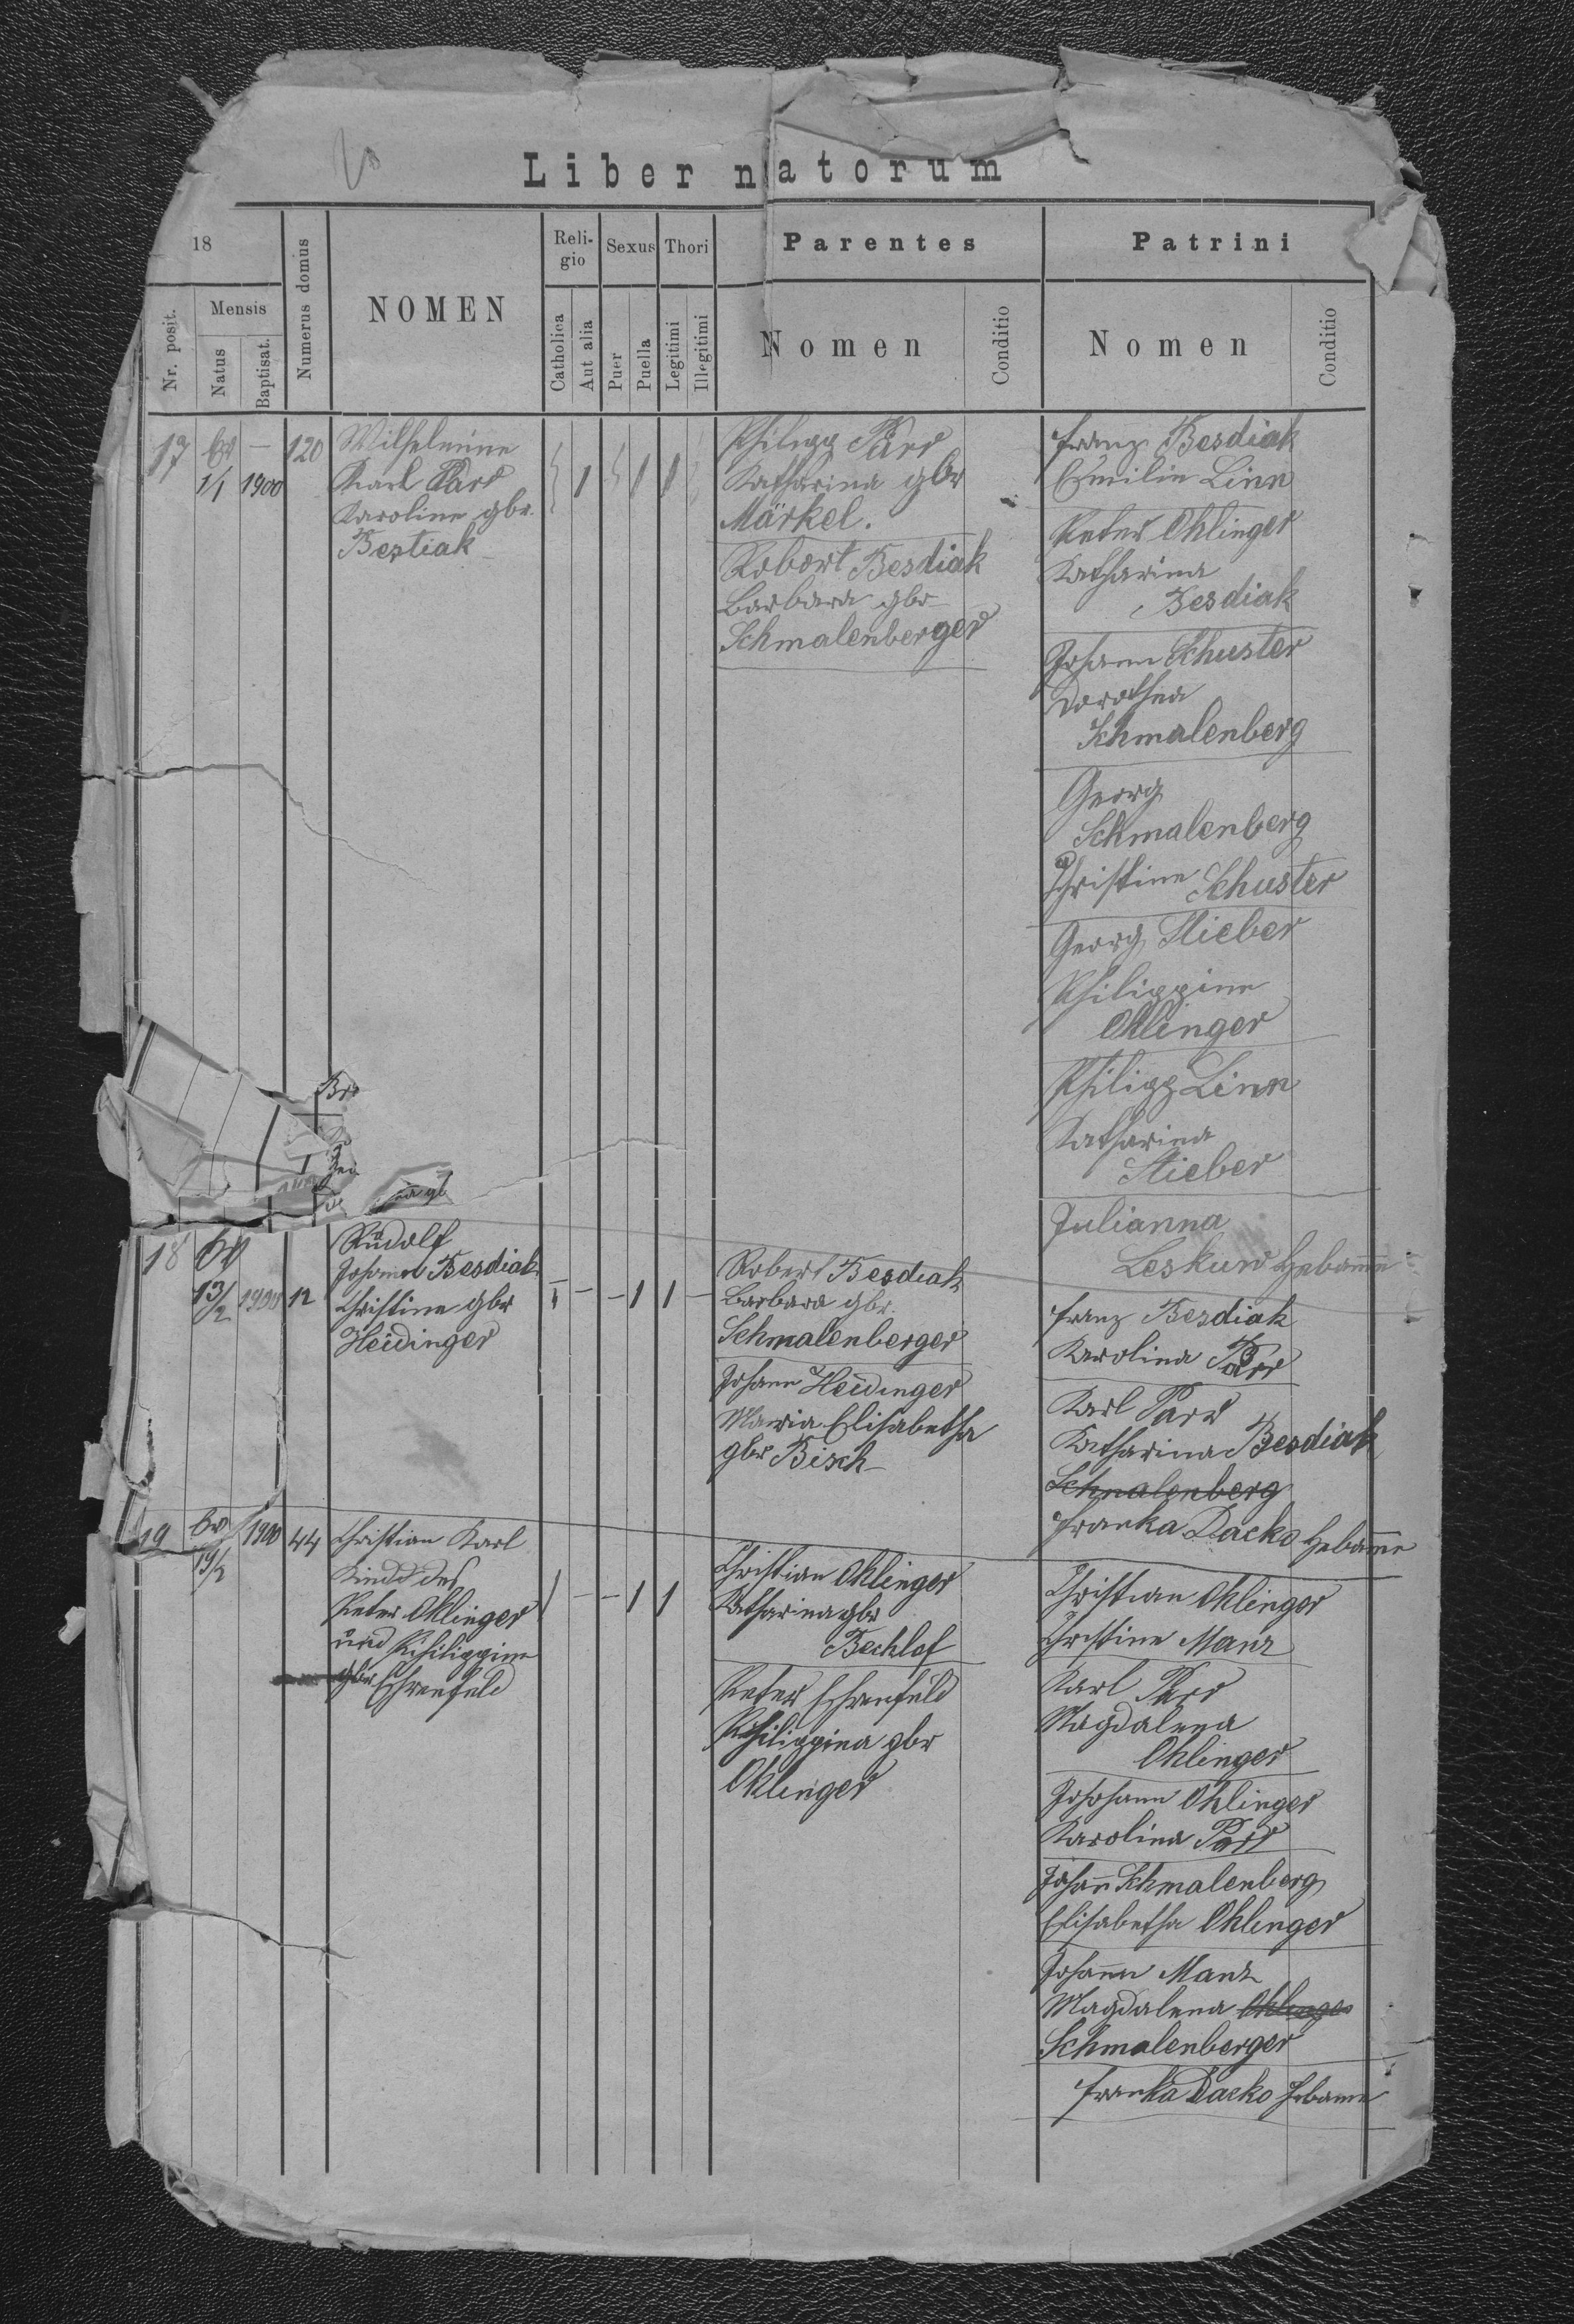 Liber natorum
18
Nr. posit.
Mensis
Natus
Baptisat.
Numerus domus
NOMEN
Reli-
gio
Catholica
Aut alia
Sexus
Puer
Puella
Thori
Legitimi
Illegitimi
Parentes
Nomen
Conditio
Patrini
Nomen
Conditio
17
1/1 1900
120
Wilhelmine
Karl Parr
Karoline gbr.
Bestiak
Philipp Parr
Katharina gbr
Märkel.
Robert Besdiak
Barbara gbr
Schmalenberger
Franz Besdiak
Emilie Linn
Peter Ohlinger
Katharina
Besdiak
Johann Schuster
Dorothea
Schmalenberg
Georg
Schmalenberg
Christine Schuster
Georg Stieber
Philippine
Ohlinger
Philipp Linn
Katharina
Stieber
Julianna
Leskuw Hebamme
18
13/2 1900 12
Rudolf
Johann Besdiak
Christine gbr
Heidinger
Robert Besdiak
Barbara gbr.
Schmalenberger
Johann Heidinger
Maria Elisabetha
gbr Bisch
Franz Besdiak
Karolina Parr
Karl Parr
Katharina Besdiak
Schmalenberg
Franka Dacko Hebamme
19
19/2
1900 44
Christian Karl
Kind des
Peter Ohlinger
und Philippine
gbr Ehrenfeld
Christian Ohlinger
Katharina gbr
Bechlof
Peter Ehrenfeld
Philippina gbr
Ohlinger
Christian Ohlinger
Christine Manz
Karl Parr
Magdalena
Ohlinger
Johann Ohlinger
Karolina Parr
Johann Schmalenberg
Elisabetha Ohlinger
Johann Manz
Magdalena Ohlinger
Schmalenberger
Franka Dacko Hebamme